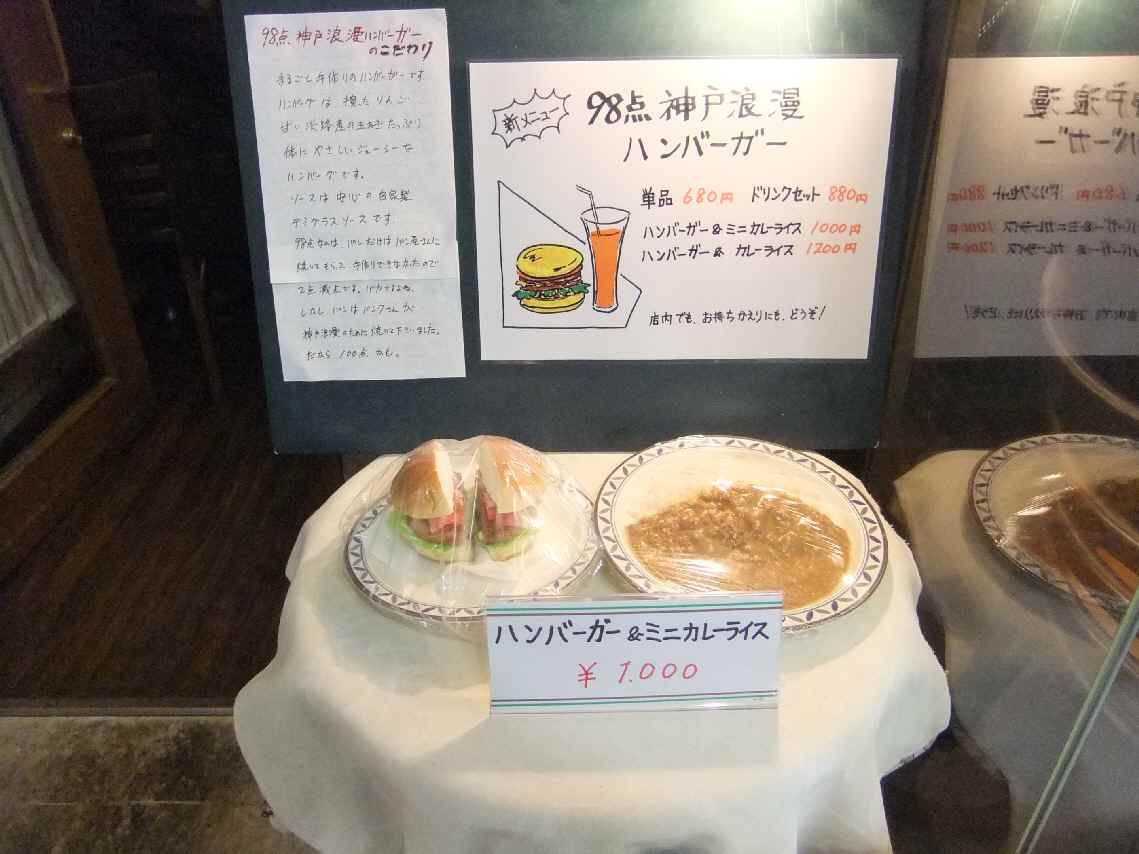 98点 神戸浪漫ハンバーガー
のこだわり
まるごと手作りのハンバーガーです
ハンバーグは 摺ったりんご
甘い 淡路産の玉ねぎたっぷり
体にやさしいジューシーな
ハンバーグです。
ソースは安心の自家製
デミグラスソースです。
98点なのは パンだけは パン屋さんに
焼いてもらって、手作りできなかったので
2点減点です。
しかし パンは パンクさんが
神戸浪漫のために焼いて下さいました。
だから 100点 かも。
新メニュー
98点 神戸浪漫
ハンバーガー
単品 680円 ドリンクセット 880円
ハンバーガー&ミニカレーライス 1000円
ハンバーガー& カレーライス 1200円
店内でも、お持ちかえりにも、どうぞ!
ハンバーガー &ミニカレーライス
¥ 1.000